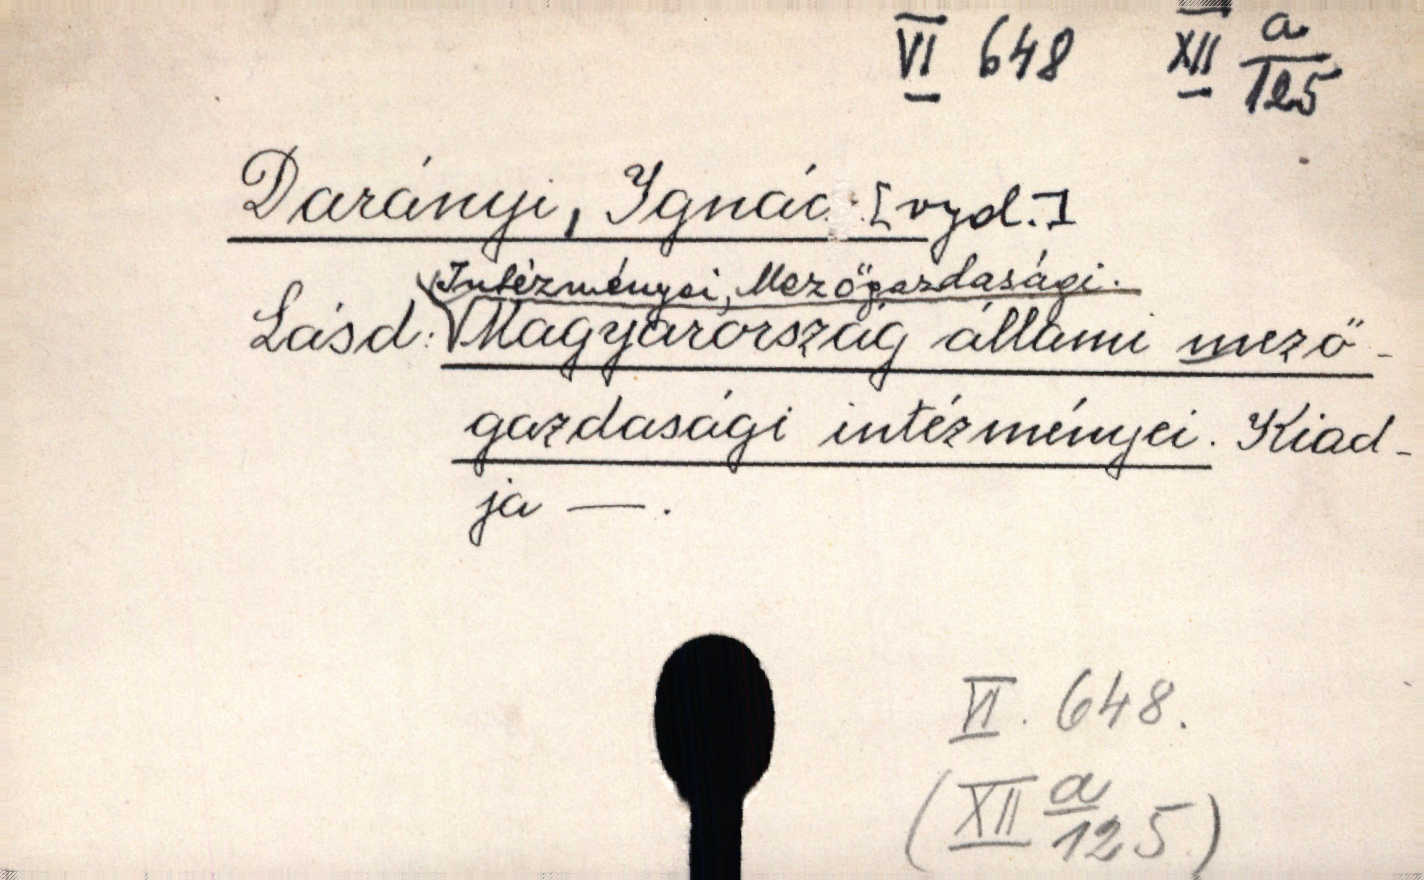 VI 648 XII a/125
Darányi, Ignác [vyd.]
Intézményei, Mezőgazdasági.
Lásd: Magyarország állami mező-
gazdasági intézményei. Kiad-
ja —.
VI. 648.
(XII a/125)